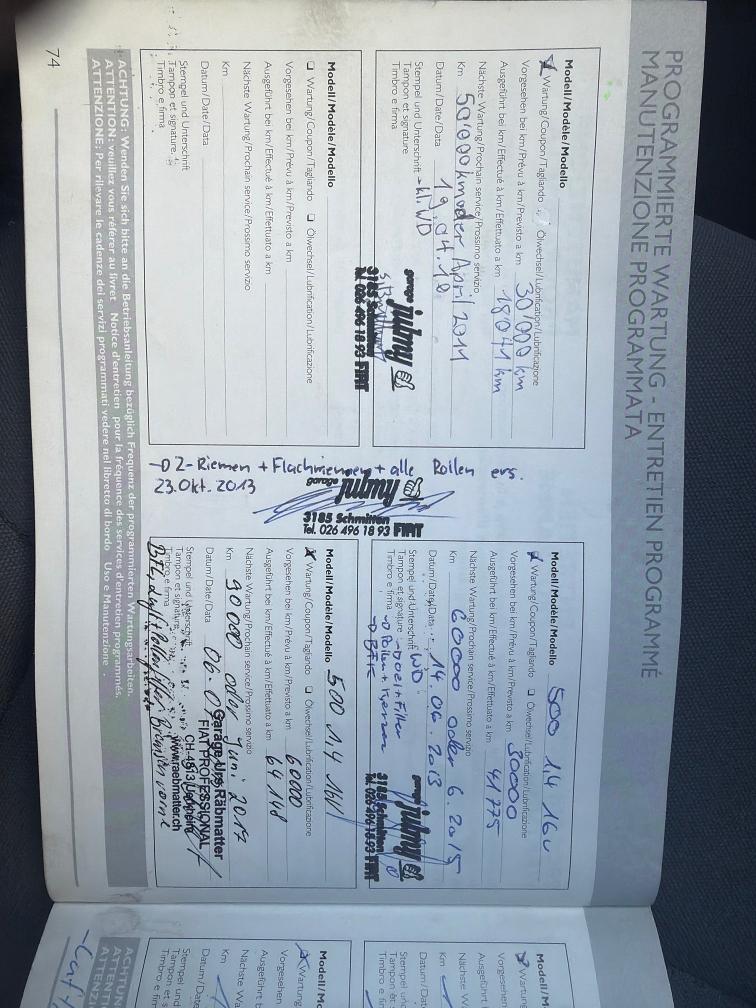 PROGRAMMIERTE WARTUNG - ENTRETIEN PROGRAMMÉ
MANUTENZIONE PROGRAMMATA
Modell/Modèle/Modello
Wartung/Coupon/Tagliando Ölwechsel/Lubrification/Lubrificazione
Vorgesehen bei km/Prévu à km/Previsto a km 30'000 km
Ausgeführt bei km/Effectué à km/Effettuato a km 18'041 km
Nächste Wartung/Prochain service/Prossimo servizio
Km 50'000km oder April 2011
Datum/Date/Data 19.04.10
Stempel und Unterschrift → kl. WD
Tampon et signature
Timbro e firma
garage julmy
3185 Schmitten
Tel. 026 496 18 93 FIAT
Modell/Modèle/Modello
❏ Wartung/Coupon/Tagliando ❏ Ölwechsel/Lubrification/Lubrificazione
Vorgesehen bei km/Prévu à km/Previsto a km
Ausgeführt bei km/Effectué à km/Effettuato a km
Nächste Wartung/Prochain service/Prossimo servizio
Km
Datum/Date/Data
Stempel und Unterschrift
Tampon et signature
Timbro e firma
→ Z-Riemen + Flachriemen + alle Rollen ers.
23.Okt. 2013
garage julmy
3185 Schmitten
Tel. 026 496 18 93 FIAT
Modell/Modèle/Modello 500 1,4 16v
Wartung/Coupon/Tagliando ❏ Ölwechsel/Lubrification/Lubrificazione
Vorgesehen bei km/Prévu à km/Previsto a km 30000
Ausgeführt bei km/Effectué à km/Effettuato a km 41775
Nächste Wartung/Prochain service/Prossimo servizio
Km 60000 oder 6.2015
Datum/Date/Data 14.06.2013
Stempel und Unterschrift WD
Tampon et signature → Oel + Filter
Timbro e firma → Pollen + Kerzen
→ BFK
garage julmy
3185 Schmitten
Tel. 026 496 18 93 FIAT
Modell/Modèle/Modello 500 1,4 16V
Wartung/Coupon/Tagliando ❏ Ölwechsel/Lubrification/Lubrificazione
Vorgesehen bei km/Prévu à km/Previsto a km 60000
Ausgeführt bei km/Effectué à km/Effettuato a km 64148
Nächste Wartung/Prochain service/Prossimo servizio
Km 90000 oder Juni 2017
Datum/Date/Data
Stempel und Unterschrift
Tampon et signature
Timbro e firma
Garage Urs Räbmatter
FIAT PROFESSIONAL
www.raebmatter.ch
ACHTUNG: Wenden Sie sich bitte an die Betriebsanleitung bezüglich Frequenz der programmierten Wartungsarbeiten.
ATTENTION: veuillez vous référer au livret Notice d'entretien pour la fréquence des services d'entretien programmés.
ATTENZIONE: Per rilevare le cadenze dei servizi programmati vedere nel libretto di bordo Uso e Manutenzione.
74